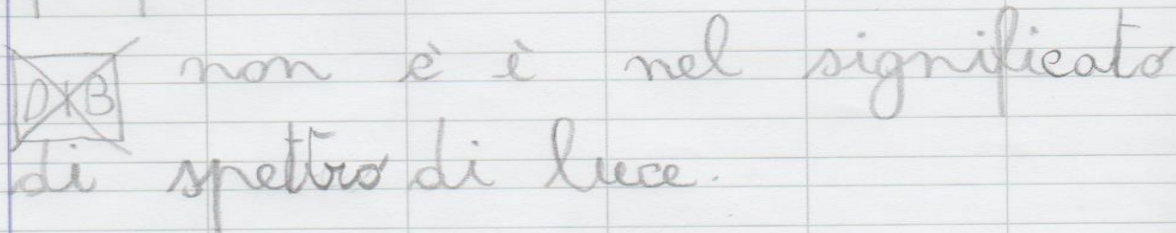 non è è nel significato
di spettro di luce.